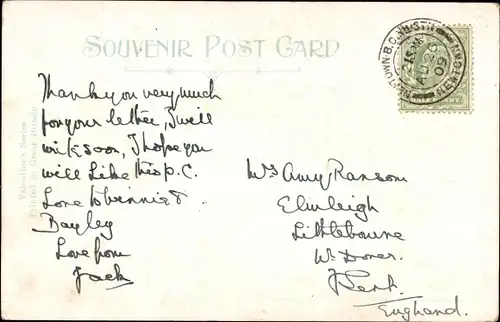 SOUVENIR POST CARD
Thank you very much
for your letter, I will
write soon, I hope you
will like this p.c.
Love to Winnie &
Bayley
Love from
Jack
Mrs Amy Ransom
Elmleigh
Littlebourne
Nr Dover
Kent
England.
Valentine's Series
Printed in Great Britain
AU 26
09